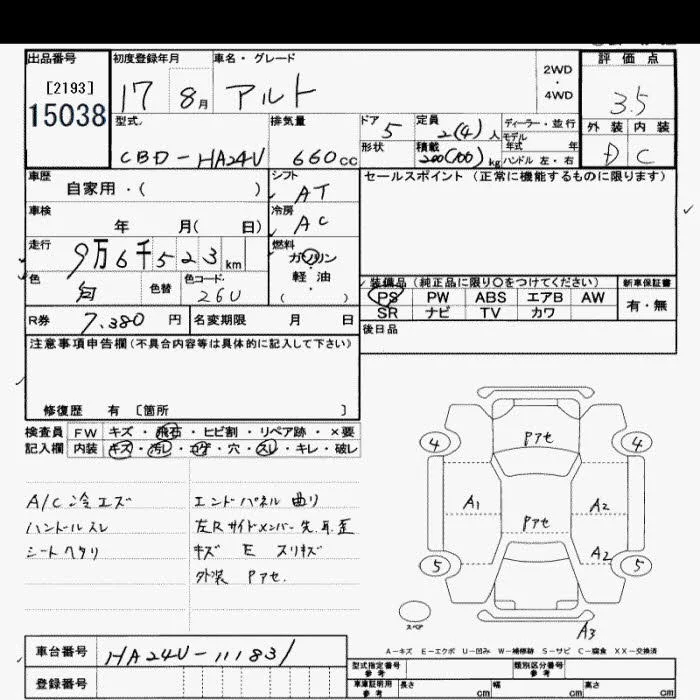 出品番号 初度登録年月 車名・グレード 2WD・4WD 評価点
[2193] 17 8月 アルト 3.5
15038
型式 排気量 ドア 5 定員 2(4)人 ディーラー・並行 外装 内装
CBD-HA24V 660cc 形状 積載 200(100)kg モデル年式 年 D C
ハンドル 左・右
車歴 シフト セールスポイント(正常に機能するものに限ります)
自家用・( ) AT
車検 冷房
年 月( 日) AC
走行 燃料
9万6千523km ガソリン
色 色替 色コード 軽油 装備品(純正品に限り○をつけてください) 新車保証書
白 26U ( ) PS PW ABS エアB AW 有・無
SR ナビ TV カワ
R券 7,380円 名変期限 月 日 後日品
注意事項申告欄(不具合内容等は具体的に記入して下さい)
修復歴 有 [箇所 ]
検査員 FW キズ・飛石・ヒビ割・リペア跡・×要
記入欄 内装 キズ・汚レ・コゲ・穴・スレ・キレ・破レ
A/C冷エズ エンドパネル曲リ
ハンドルスレ 左Rサイドメンバー先
シートヘタリ キズ E スリキズ
外装 Pアセ.
4 Pアセ 4
A1 Pアセ A2
A2
5 5
スペア
A3
A-キズ E-エクボ U-凹み W-補修跡 S-サビ C-腐食 XX-交換済
車台番号 HA24V-111831
登録番号
型式指定番号 参考 類別区分番号 参考
車庫証明用 参考 長さ cm 幅 cm 高さ cm